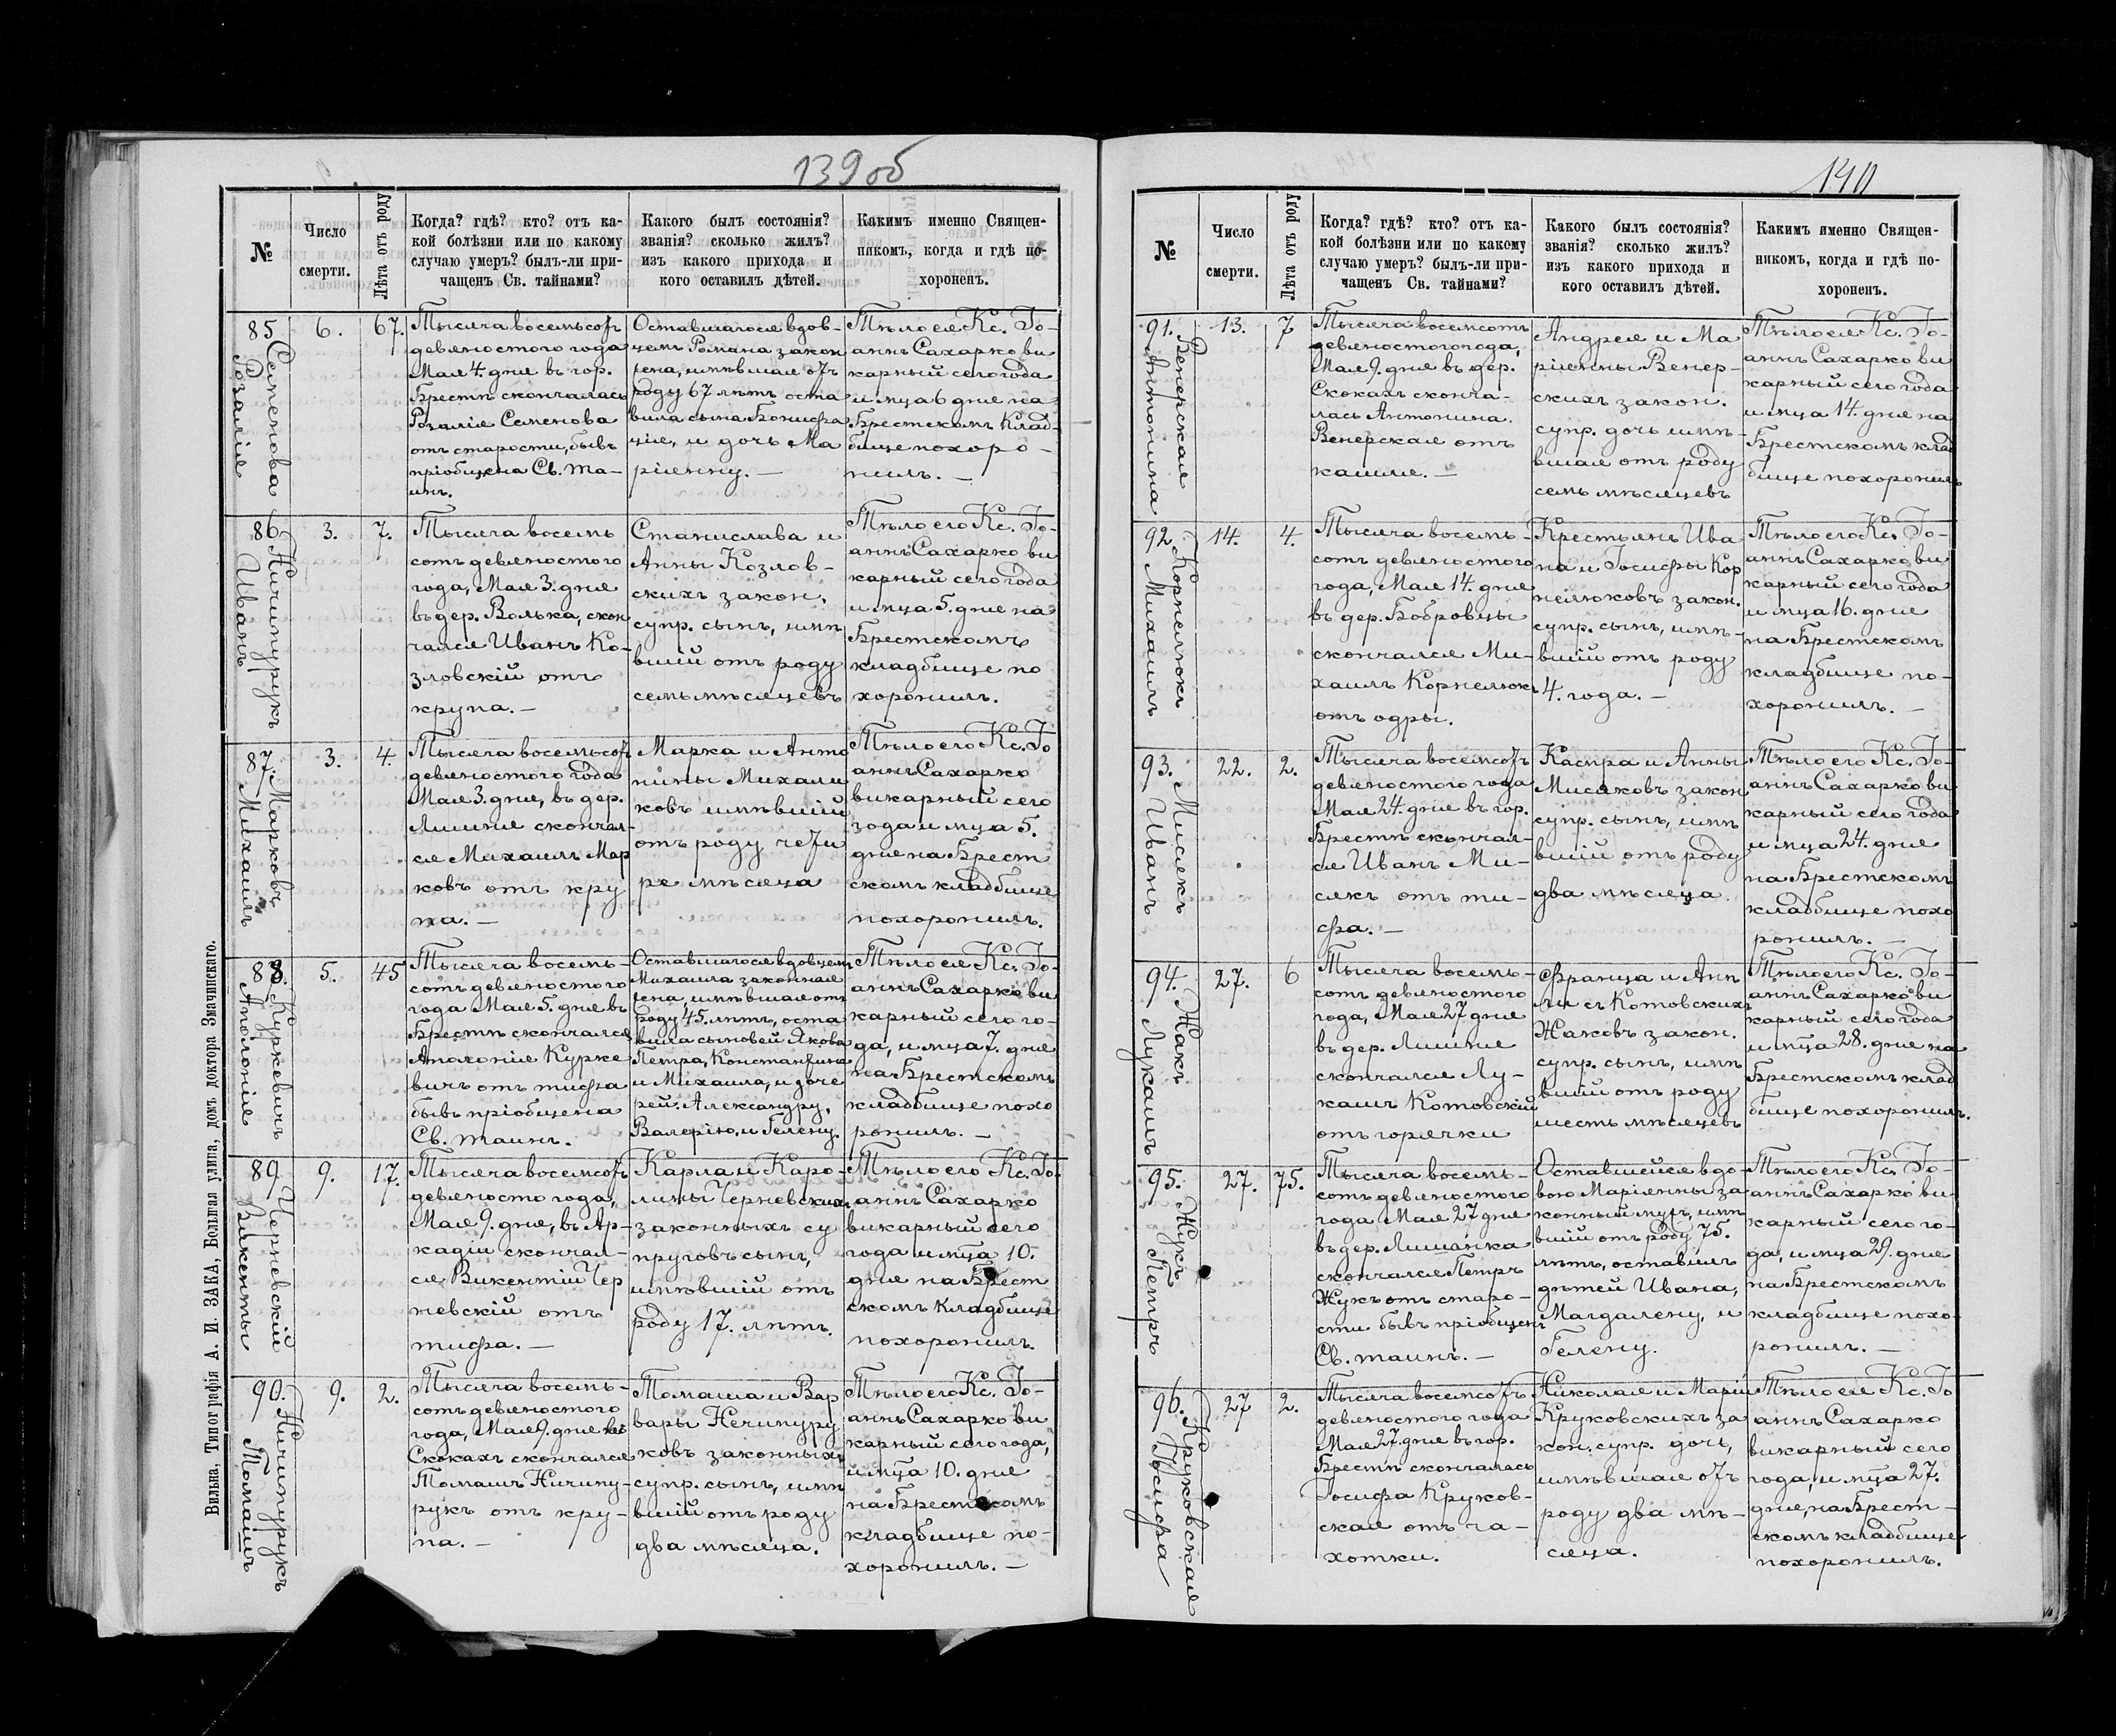 139 об
№
Число
смерти.
Лѣта отъ роду
Когда? гдѣ? кто? отъ ка-
кой болѣзни или по какому
случаю умеръ? былъ-ли при-
чащенъ Св. тайнами?
Какого былъ состоянія?
званія? сколько жилъ?
изъ какого прихода и
кого оставилъ дѣтей.
Какимъ именно Священ-
никомъ, когда и гдѣ по-
хороненъ.
85
Семенова
Розалія
6.
67.
Тысяча восемьсотъ
девяностого года
Мая 4 дня въ гор.
Брестѣ скончалась
Розалія Семенова
отъ старости, бывъ
пріобщена Св. та-
инъ.
Оставшагося вдов-
цемъ Романа закон
жена, имѣвшая отъ
роду 67 лѣтъ оста
вила сына Бонифа
ція, и дочь Ма
ріянну. —
Тѣло ея Кс. Іо-
аннъ Сахарко ви
карный сего года
и мца 6 дня на
Брестскомъ Клад-
бище похоро-
нилъ. —
86
Ничипурукъ
Иванъ
3.
7.
Тысяча восемь
сотъ девяностого
года, Мая 3. дня
въ дер. Волька, скон
чался Иванъ Ко-
зловскій отъ
крупа. —
Станислава и
Анны Козлов-
скихъ закон.
супр. сынъ, имѣ
вшій отъ роду
семь мѣсяцевъ
Тѣло его Кс. Іо-
аннъ Сахарко ви
карный сего года
и мца 5. дня на
Брестскомъ
кладбище по
хоронилъ.
87.
Марковъ
Михаилъ
3.
4.
Тысяча восемьсотъ
девяностого года
Мая 3. дня, въ дер.
Лишня скончал-
ся Михаилъ Мар
ковъ отъ кру
па. —
Марка и Анто
нины Михали
ковъ имѣвшій
отъ роду четы
ре мѣсяца
Тѣло его Кс. Іо
аннъ Сахарко
викарный сего
года и мца 5.
дня на Брест
скомъ кладбище
похоронилъ.
88.
Куркевичъ
Аполонія
5.
45
Тысяча восемь-
сотъ девяностого
года Мая 5. дня въ
Брестѣ скончался
Аполонія Курке
вичъ отъ тифа
бывъ пріобщена
Св. таинъ.
Оставшагося вдовцемъ
Михаила законная
жена, имѣвшая отъ
роду 45. лѣтъ, оста
вила сыновей Якова
Петра, Константина
и Михаила, и доче
рей: Александру,
Валерію, и Гелену.
Тѣло ея Кс. Іо-
аннъ Сахарко ви
карный сего го-
да, и мца 7. дня
на Брестскомъ
кладбище похо
ронилъ. —
89
Черневскій
Викентій
9.
17.
Тысяча восемсотъ
девяносто года,
Мая 9. дня, въ Ар-
кадіи скончал-
ся Викентій Чер
невскій отъ
тифа. —
Карла и Каро-
лины Черневскихъ
законныхъ су
пруговъ сынъ,
имѣвшій отъ
роду 17. лѣтъ.
Тѣло его Кс. Іо-
аннъ Сахарко
викарный сего
года и мца 10.
дня на Брест
скомъ кладбище
похоронилъ.
90.
Ничипурукъ
Томашъ
9.
2.
Тысяча восемь-
сотъ девяностого
года, Мая 9. дня въ
Скокахъ скончался
Томашъ Ничипу-
рукъ отъ кру-
па. —
Томаша и Вар
вары Нечипуру
ковъ законныхъ
супр. сынъ, имѣ
вшій отъ роду
два мѣсяца.
Тѣло его Кс. Іо-
аннъ Сахарко ви
карный сего года,
и мца 10. дня
на Брестскомъ
кладбище по-
хоронилъ. —
Вильна, Типографія А. И. ЗАКА, Большая улица, домъ доктора Змачинскаго.
140
№
Число
смерти.
Лѣта отъ роду
Когда? гдѣ? кто? отъ ка-
кой болѣзни или по какому
случаю умеръ? былъ-ли при-
чащенъ Св. тайнами?
Какого былъ состоянія?
званія? сколько жилъ?
изъ какого прихода и
кого оставилъ дѣтей.
Какимъ именно Священ-
никомъ, когда и гдѣ по-
хороненъ.
91.
Венерская
Антонина
13.
7
Тысяча восемсотъ
девяностого года,
Мая 9. дня въ дер.
Скокахъ сконча-
лась Антонина
Венерская отъ
кашля. —
Андрея и Ма
ріянны Венер-
скихъ закон.
супр. дочь имѣ-
вшая отъ роду
семь мѣсяцевъ
Тѣло ея Кс. Іо-
аннъ Сахарко ви
карный сего года
и мца 14. дня на
Брестскомъ клад
бище похоронилъ
92
Корнелюкъ
Михаилъ
14.
4.
Тысяча восемь-
сотъ девяностого
года, Мая 14. дня
въ дер. Бобровцы
скончался Ми-
хаилъ Корнелюкъ
отъ одры.
Крестьянъ Ива
на и Іосифы Кор
нелюковъ закон.
супр. сынъ, имѣ-
вшій отъ роду
4. года. —
Тѣло его Кс. Іо-
аннъ Сахарко ви
карный сего года
и мца 16. дня
на Брестскомъ
кладбище по-
хоронилъ. —
93.
Мисякъ
Иванъ
22.
2.
Тысяча восемсотъ
девяностого года
Мая 24. дня въ гор.
Брестѣ скончал-
ся Иванъ Ми-
сякъ отъ ти-
фа. —
Каспра и Анны
Мисяковъ закон
супр. сынъ, имѣ
вшій отъ роду
два мѣсяца
Тѣло его Кс. Іо-
аннъ Сахарко ви
карный сего года
и мца 24. дня
на Брестскомъ
кладбище похо
ронилъ. —
94.
Жакъ
Лукашъ
27.
6
Тысяча восемь-
сотъ девяностого
года, Мая 27 дня
въ дер. Лишня
скончался Лу-
кашъ Котовскій
отъ горячки
Франца и Анн
ы съ Котовскихъ
Жаковъ закон.
супр. сынъ, имѣ
вшій отъ роду
шесть мѣсяцевъ
Тѣло его Кс. Іо-
аннъ Сахарко ви
карный сего года
и мца 28. дня на
Брестскомъ клад
бище похоронилъ.
95.
Жукъ
Петръ
27.
75.
Тысяча восемь-
сотъ девяностого
года Мая 27 дня
въ дер. Лишанка
скончался Петръ
Жукъ отъ старо-
сти бывъ пріобщенъ
Св. таинъ. —
Оставшейся вдо-
вою Маріянны за
конный мужъ, имѣ
вшій отъ роду 75.
лѣтъ, оставилъ
дѣтей Ивана,
Магдалену, и
Гелену.
Тѣло его Кс. Іо-
аннъ Сахарко ви
карный сего го-
да, и мца 29. дня
на Брестскомъ
кладбище похо-
ронилъ. —
96.
Круковская
Іосифа
27
2.
Тысяча восемсотъ
девяностого года
Мая 27. дня въ гор.
Брестѣ скончалась
Іосифа Круков-
ская отъ ча-
хотки.
Николая и Маріи
Круковскихъ за
кон. супр. дочь,
имѣвшая отъ
роду два мѣ-
сяца.
Тѣло ея Кс. Іо
аннъ Сахарко
викарный сего
года, и мца 27.
дня, на Брест-
скомъ кладбище
похоронилъ.